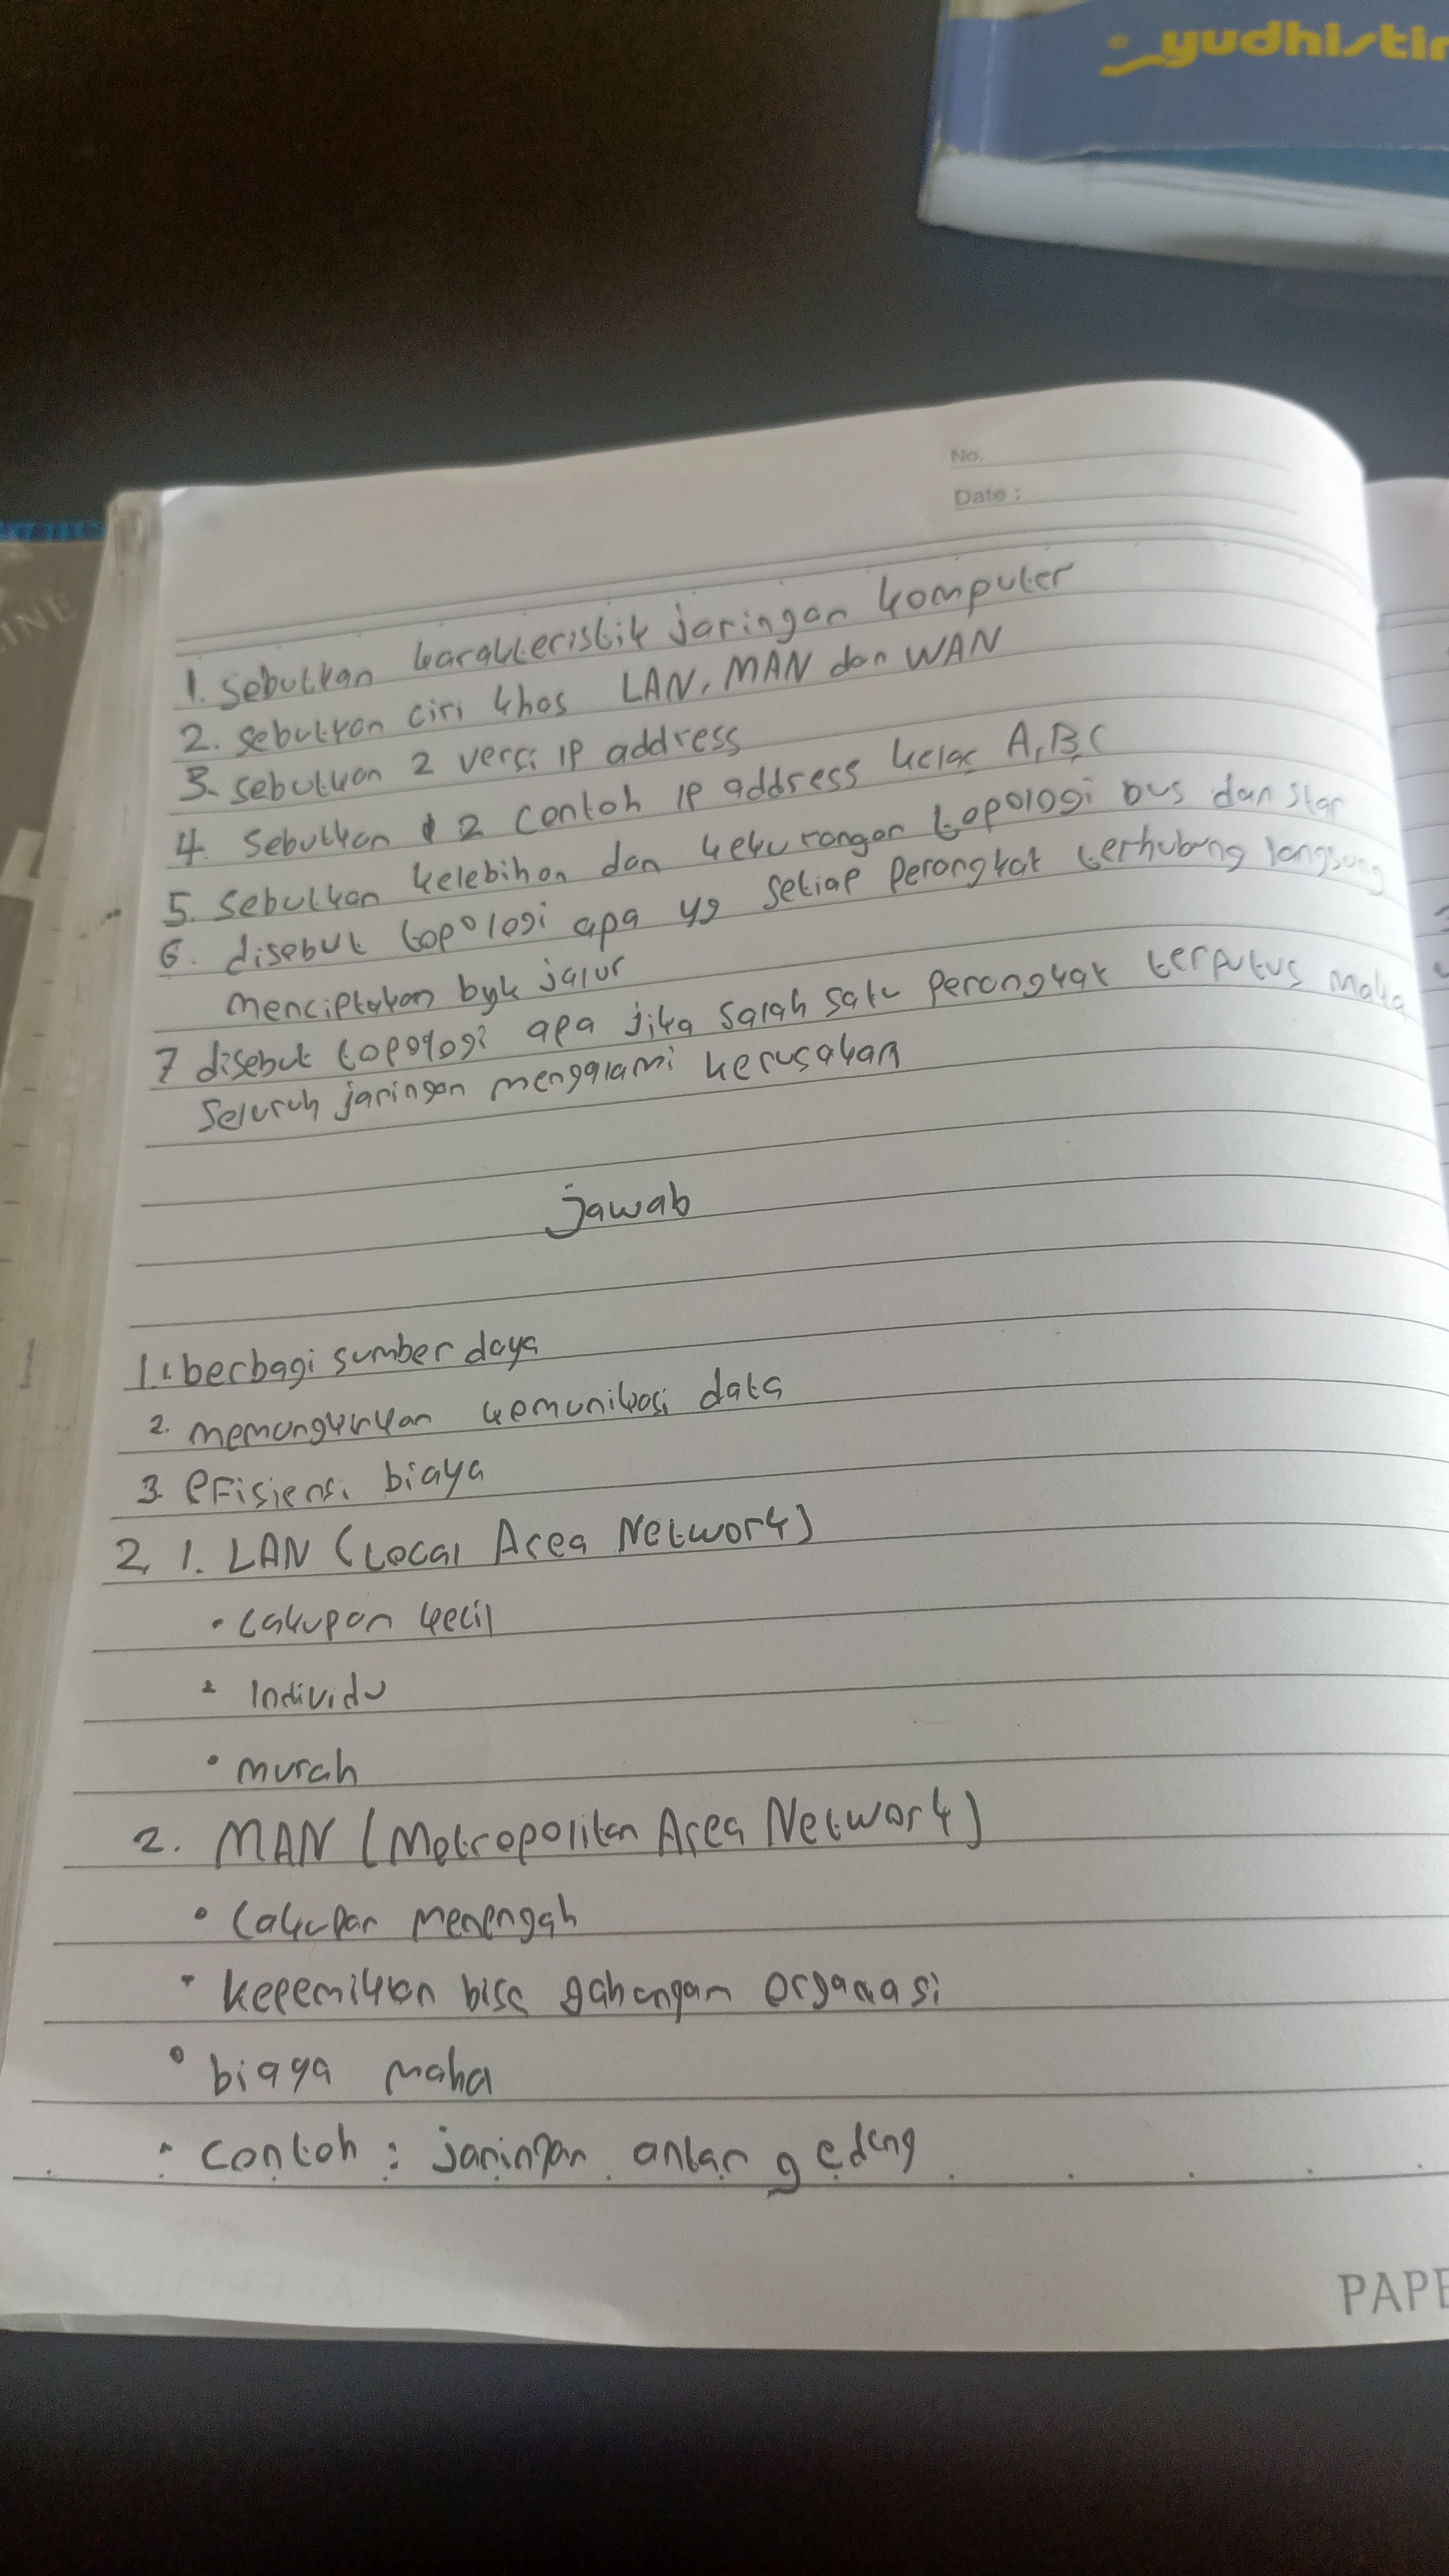 yudhistir
INE
No.
Date :
1. Sebutkan karakteristik jaringan komputer
2. sebutkan ciri khas LAN, MAN dan WAN
3. sebutkan 2 versi IP address
4. sebutkan 2 contoh IP address kelas A, B, C
5. Sebutkan kelebihan dan kekurangan topologi bus dan star
6. disebut topologi apa yg setiap perangkat terhubung langsung
menciptakan byk jalur
7 disebut topologi apa jika salah satu perangkat terputus maka
seluruh jaringan mengalami kerusakan
jawab
1. 1. berbagi sumber daya
2. memungkinkan komunikasi data
3. efisiensi biaya
2. 1. LAN (Local Area Network)
• cakupan kecil
• Individu
• murah
2. MAN (Metropolitan Area Network)
• cakupan menengah
• kepemilikan bisa gabungan
• biaya mahal
• contoh : jaringan antar gedung
PAPE